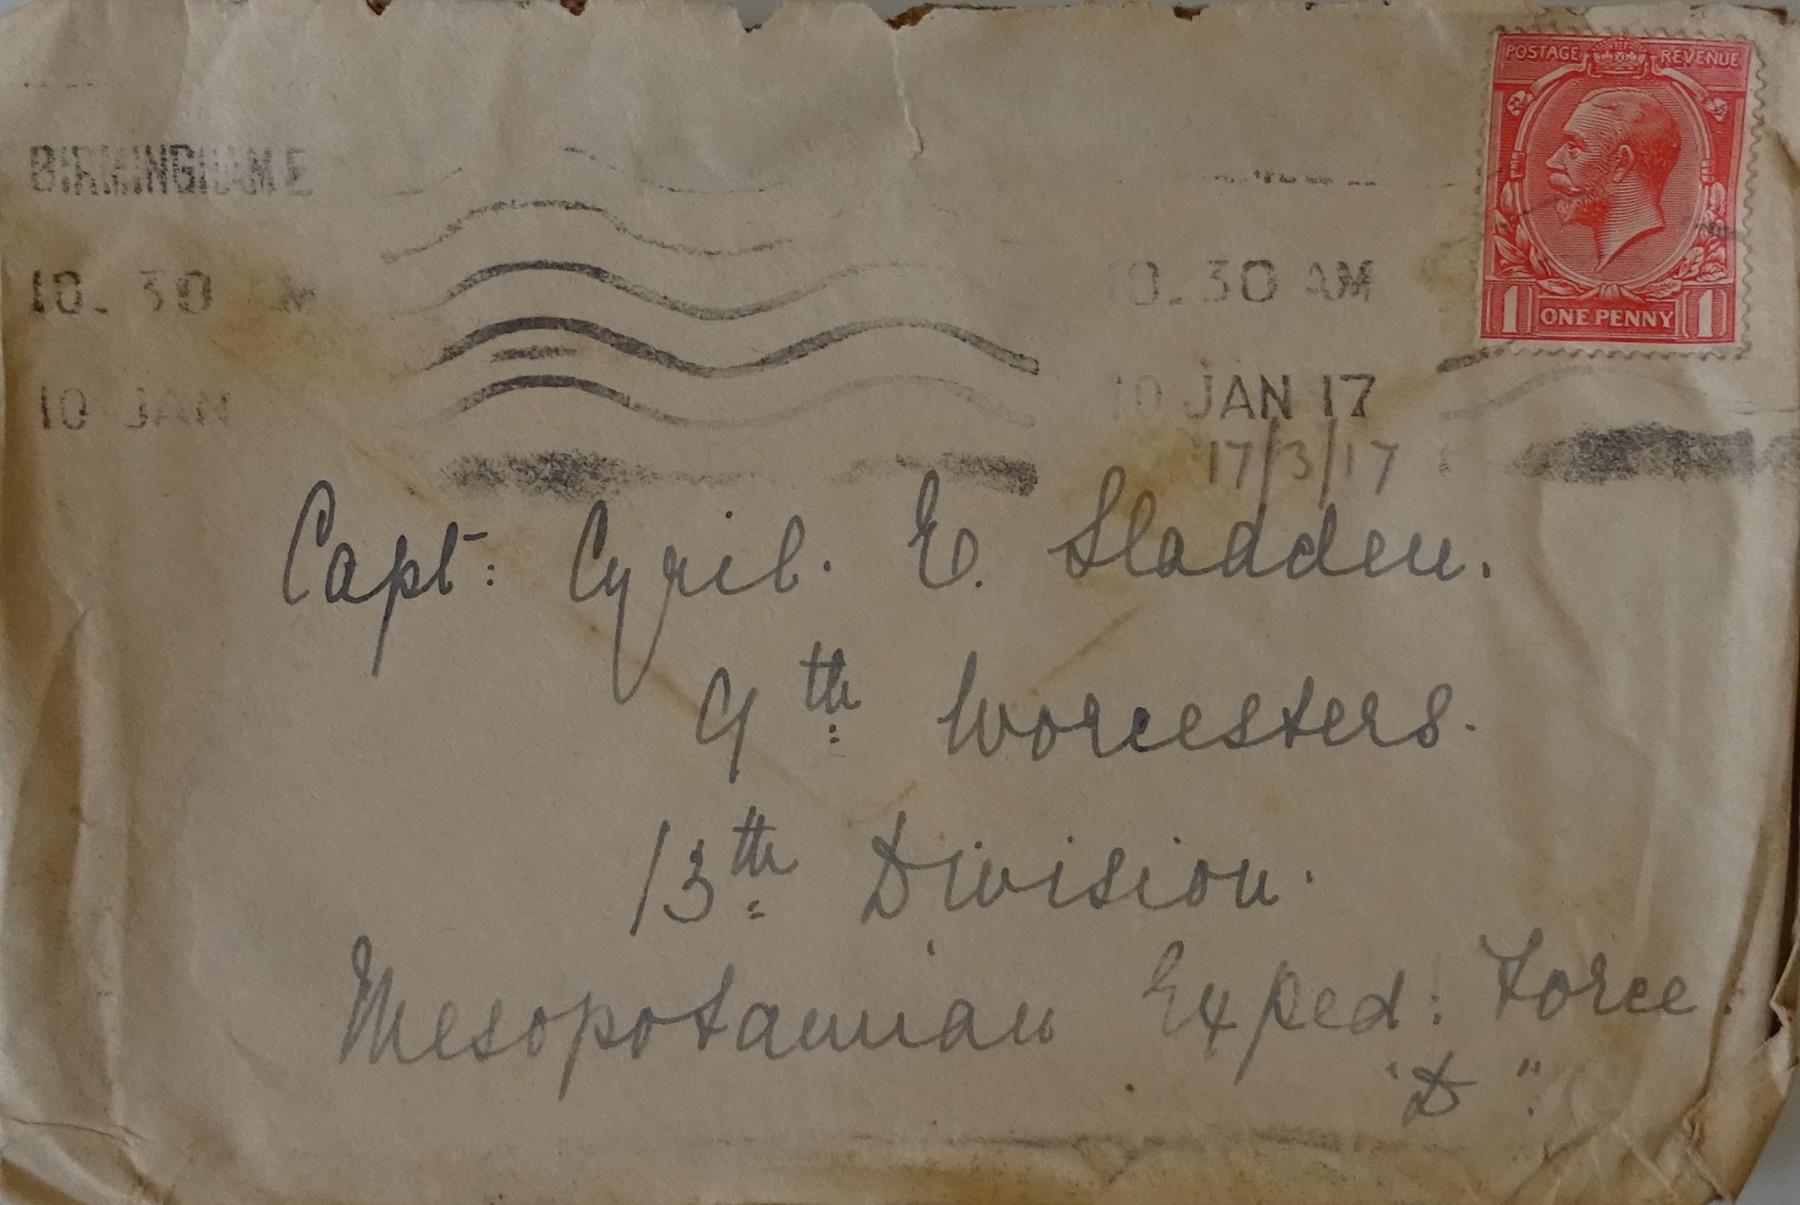 POSTAGE REVENUE
1 ONE PENNY 1
BIRMINGHAM E
10. 30 AM
10 JAN
10. 30 AM
10 JAN 17
17/3/17
Capt: Cyril. E. Sladden.
9th Worcesters.
13th Division.
Mesopotamian Exped: Force.
"D".